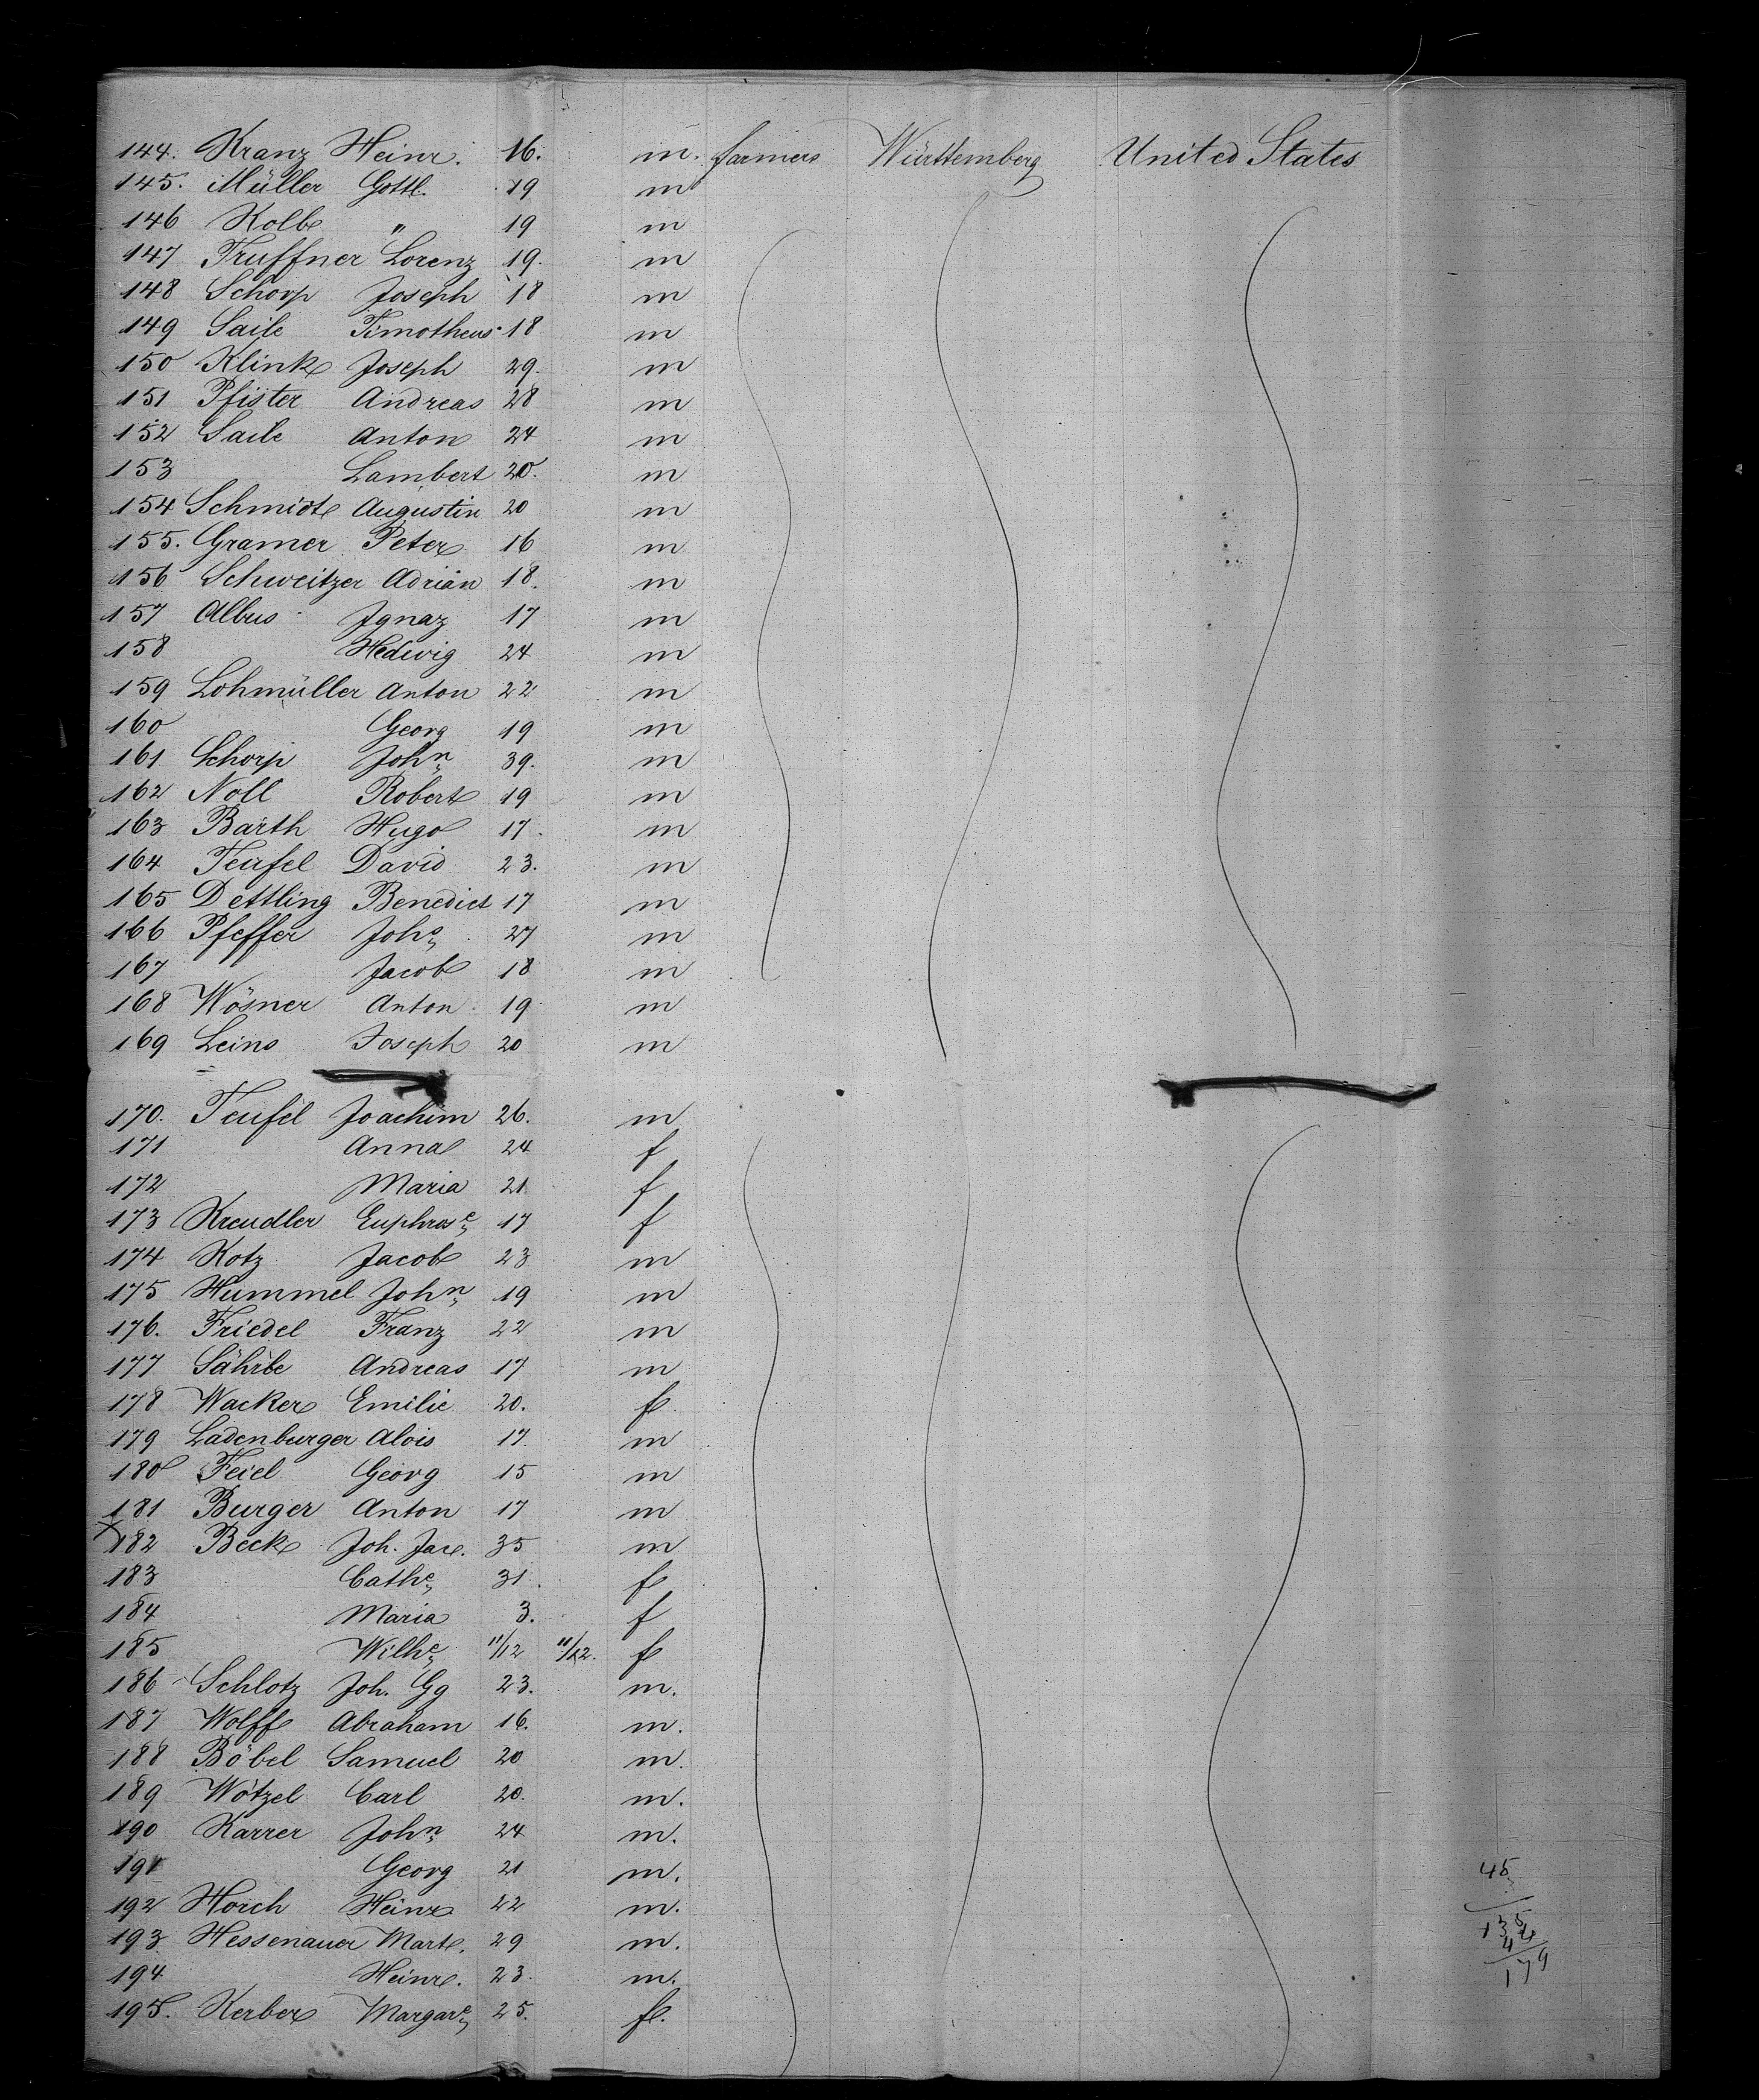 144. Kranz Heinr. 16. m. farmers Württemberg United States
145. Müller Gottl. 19 m
146 Kolb " 19 m
147 Truffner Lorenz 19. m
148 Schorp Joseph 18 m
149 Saile Timotheus 18 m
150 Klink Joseph 29. m
151 Pfister Andreas 28 m
152 Saile Anton 24 m
153 Lambert 20. m
154 Schmidt Augustin 20 m
155. Gramer Peter 16 m
156 Schweitzer Adrian 18. m
157 Albus Ignaz 17 m
158 Hedwig 24 m
159 Lohmüller Anton 22 m
160 Georg 19 m
161 Schorp John 39. m
162 Noll Robert 19 m
163 Barth Hugo 17. m
164 Teufel David 23. m
165 Dettling Benedict 17 m
166 Pfeffer Johs 27 m
167 Jacob 18 m
168 Wösner Anton 19 m
169 Leins Joseph 20 m
170. Teufel Joachim 26. m
171 Anna 24 f
172 Maria 21 f
173 Kreudler Euphrose 17 f
174 Kotz Jacob 23 m
175 Hummel John 19 m
176. Friedel Franz 22 m
177 Sährle Andreas 17 m
178 Wacker Emilie 20. f
179 Ladenburger Alois 17. m
180 Feiel Georg 15 m
181 Burger Anton 17 m
182 Beck Joh. Jac. 35 m
183 Cathe 31. f
184 Maria 3. f
185 Wilhe 11/12 11/12. f
186 Schlotz Joh. Gg 23. m.
187 Wolff Abraham 16. m.
188 Böbel Samuel 20 m.
189 Wötzel Carl 20. m.
190 Karrer John 24 m.
191 Georg 21 m.
192 Horch Heinr 22 m.
193 Hessenauer Mart. 29 m.
194 Heinr. 23. m.
195. Kerber Margare 25. f.
45
135
44
179